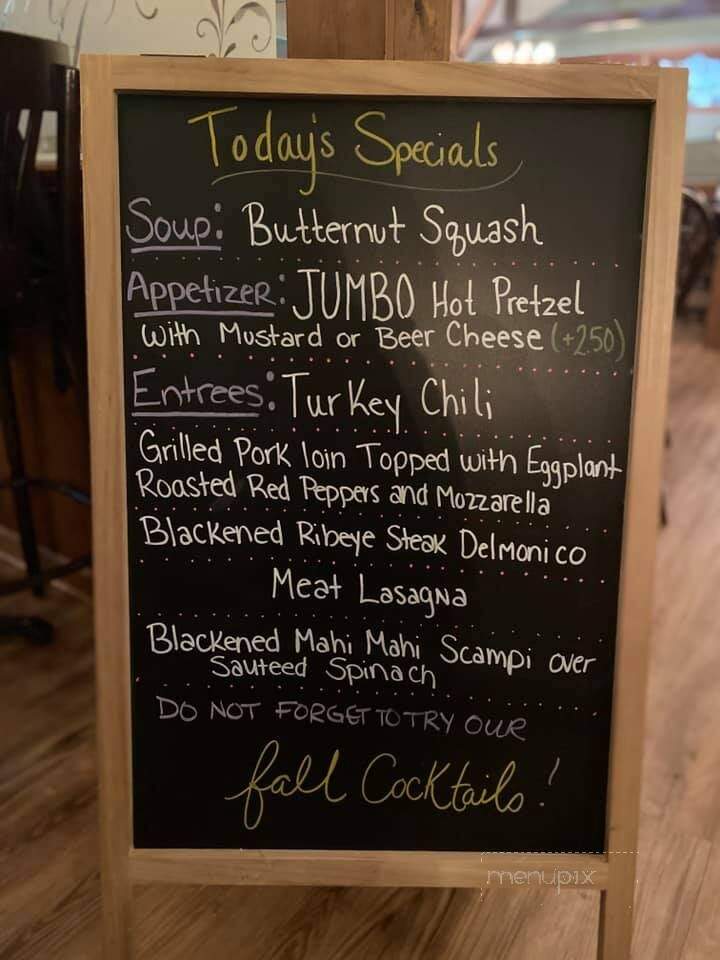 Today's Specials
Soup: Butternut Squash
Appetizer: JUMBO Hot Pretzel
with Mustard or Beer Cheese (+2.50)
Entrees: Turkey Chili
Grilled Pork loin Topped with Eggplant
Roasted Red Peppers and Mozzarella
Blackened Ribeye Steak Delmonico
Meat Lasagna
Blackened Mahi Mahi Scampi over
Sauteed Spinach
DO NOT FORGET TO TRY OUR
fall Cocktails!
menupix